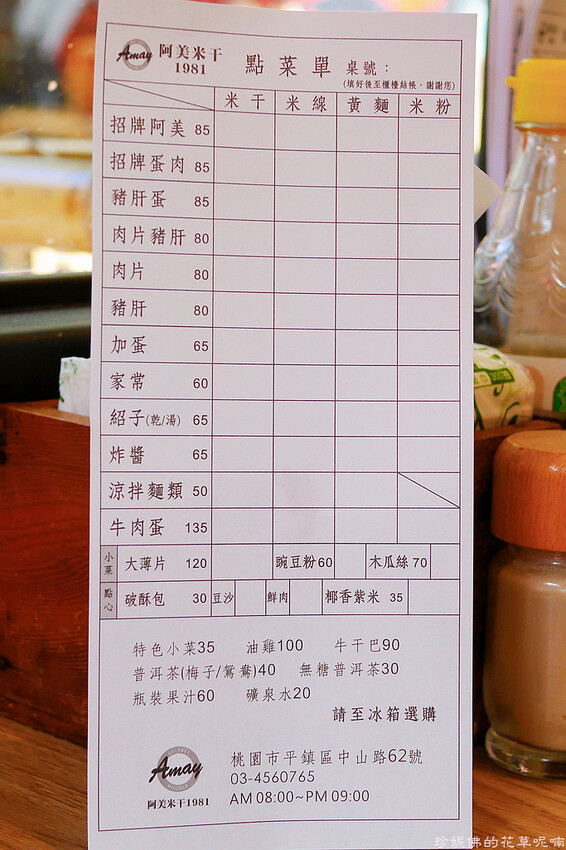 Amay 阿美米干 1981 點菜單 桌號：
(填好後至櫃檯結帳，謝謝您)
米干 米線 黃麵 米粉
招牌阿美 85
招牌蛋肉 85
豬肝蛋 85
肉片豬肝 80
肉片 80
豬肝 80
加蛋 65
家常 60
紹子(乾/湯) 65
炸醬 65
涼拌麵類 50
牛肉蛋 135
小菜 大薄片 120 豌豆粉60 木瓜絲 70
點心 破酥包 30 豆沙 鮮肉 椰香紫米 35
特色小菜35 油雞100 牛干巴90
普洱茶(梅子/鴛鴦)40 無糖普洱茶30
瓶裝果汁60 礦泉水20
請至冰箱選購
Amay
阿美米干1981
桃園市平鎮區中山路62號
03-4560765
AM 08:00~PM 09:00
珍妮佛的花草呢喃